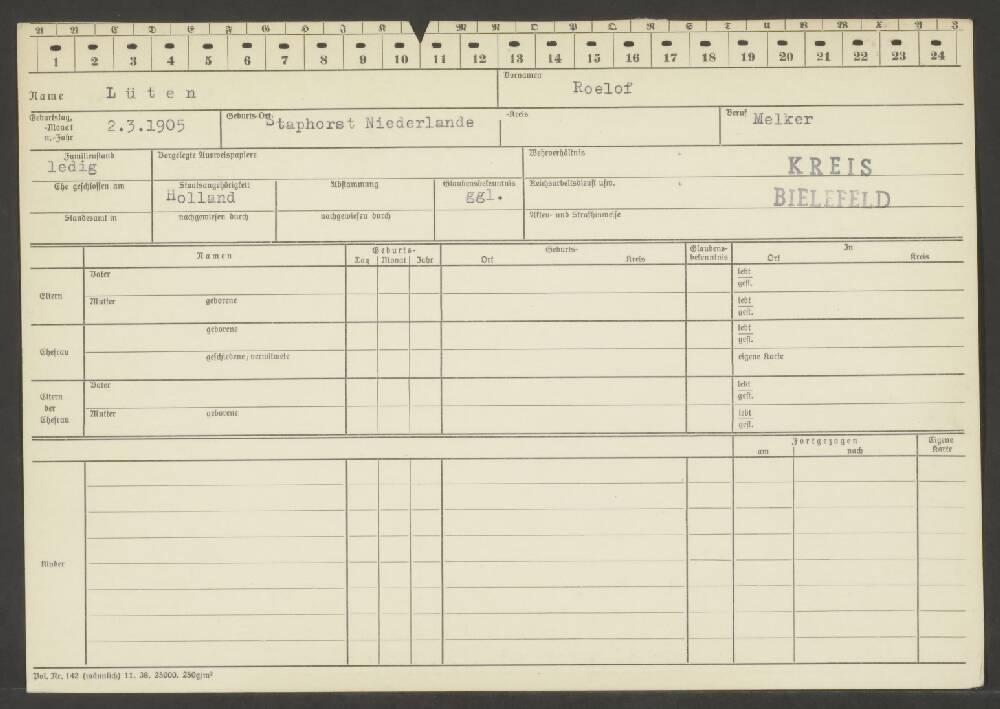 A A C D E F G H J K M N O P Q R S T U V W X Y Z
1 2 3 4 5 6 7 8 9 10 11 12 13 14 15 16 17 18 19 20 21 22 23 24
Name Lüten
Vornamen Roelof
Geburtstag, -Monat u. -Jahr 2.3.1905
Geburts-Ort: Staphorst Niederlande
-Kreis
Beruf Melker
Familienstand ledig
Vorgelegte Ausweispapiere
Wehrverhältnis
KREIS
BIELEFELD
Ehe geschlossen am
Staatsangehörigkeit Holland
Abstammung
Glaubensbekenntnis ggl.
Reichsarbeitsdienst usw.
Standesamt in
nachgewiesen durch
nachgewiesen durch
Akten- und Strafhinweise
Namen
Geburts-
Tag Monat Jahr
Geburts-
Ort Kreis
Glaubens-
bekenntnis
In
Ort Kreis
Eltern
Vater
lebt
gest.
Mutter geborene
lebt
gest.
Ehefrau
geborene
lebt
gest.
geschiedene, verwitwete
eigene Karte
Eltern
der
Ehefrau
Vater
lebt
gest.
Mutter geborene
lebt
gest.
Fortgezogen
am nach
Eigene
Karte
Kinder
Pol. Nr. 142 (männlich) 11. 38. 25000. 250g/m²